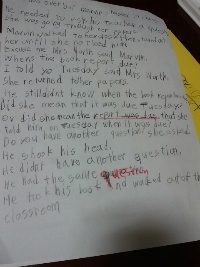 He needed to ask his teacher a question
Marvin walked to
her until she noticed him.
Excuse me Mrs. North said Marvin
When's the book report due?
I told you Tuesday said Mrs. North.
She returned to her papers.
He still didn't know when the book report was
Did she mean that it was due Tuesday?
Or did she mean the report was due that she
Told him on Tuesday when it was due?
Do you have another question? she asked
He shook his head,
He didn't have another question,
He had the same question
He took his book and walked out of the
classroom